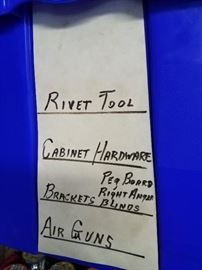 RIVET TOOL
CABINET HARDWARE
PEG BOARD
RIGHT ANGLE
BRACKETS BLINDS
AIR GUNS